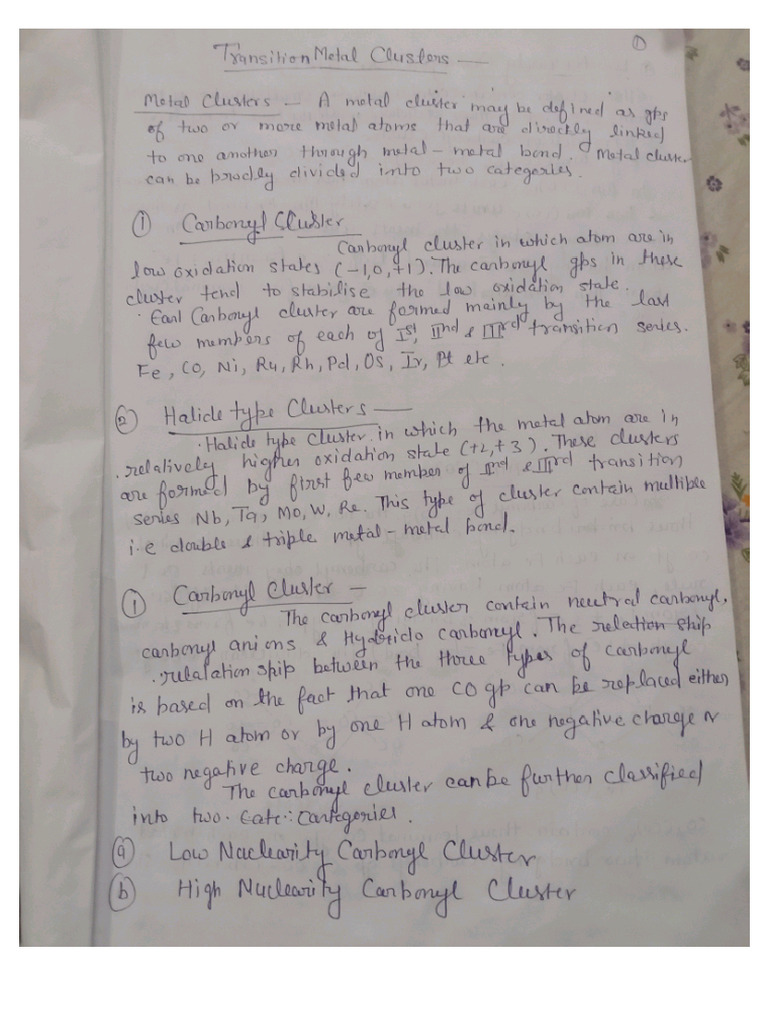 ①
Transition Metal Clusters —
Metal Clusters - A metal cluster may be defined as gps
of two or more metal atoms that are directly linked
to one another through metal-metal bond. Metal cluster
can be brodly divided into two categories.
① Carbonyl Cluster
Carbonyl cluster in which atom are in
low oxidation states (-1,0,+1). The carbonyl gps in these
cluster tend to stabilise the low oxidation state.
Carbonyl cluster are formed mainly by the last
few members of each of Ist, IInd & IIIrd transition series.
Fe, Co, Ni, Ru, Rh, Pd, Os, Ir, Pt etc.
② Halide type Clusters —
· Halide type Cluster in which the metal atom are in
· relatively higher oxidation state (+2,+3). These clusters
are formed by first few member of IInd & IIIrd transition
series Nb, Ta, Mo, W, Re. This type of cluster contain multible
i.e double & triple metal-metal bond.
① Carbonyl Cluster —
The carbonyl cluster contain neutral carbonyl,
carbonyl anions & Hydrido carbonyl. The relection ship
· relalation ship between the three types of carbonyl
is based on the fact that one CO gp can be replaced either
by two H atom or by one H atom & one negative charge or
two negative charge.
The carbonyl cluster can be further classified
into two. Cate: Cartegories.
ⓐ Low Nuclearity Carbonyl Cluster
ⓑ High Nuclearity Carbonyl Cluster